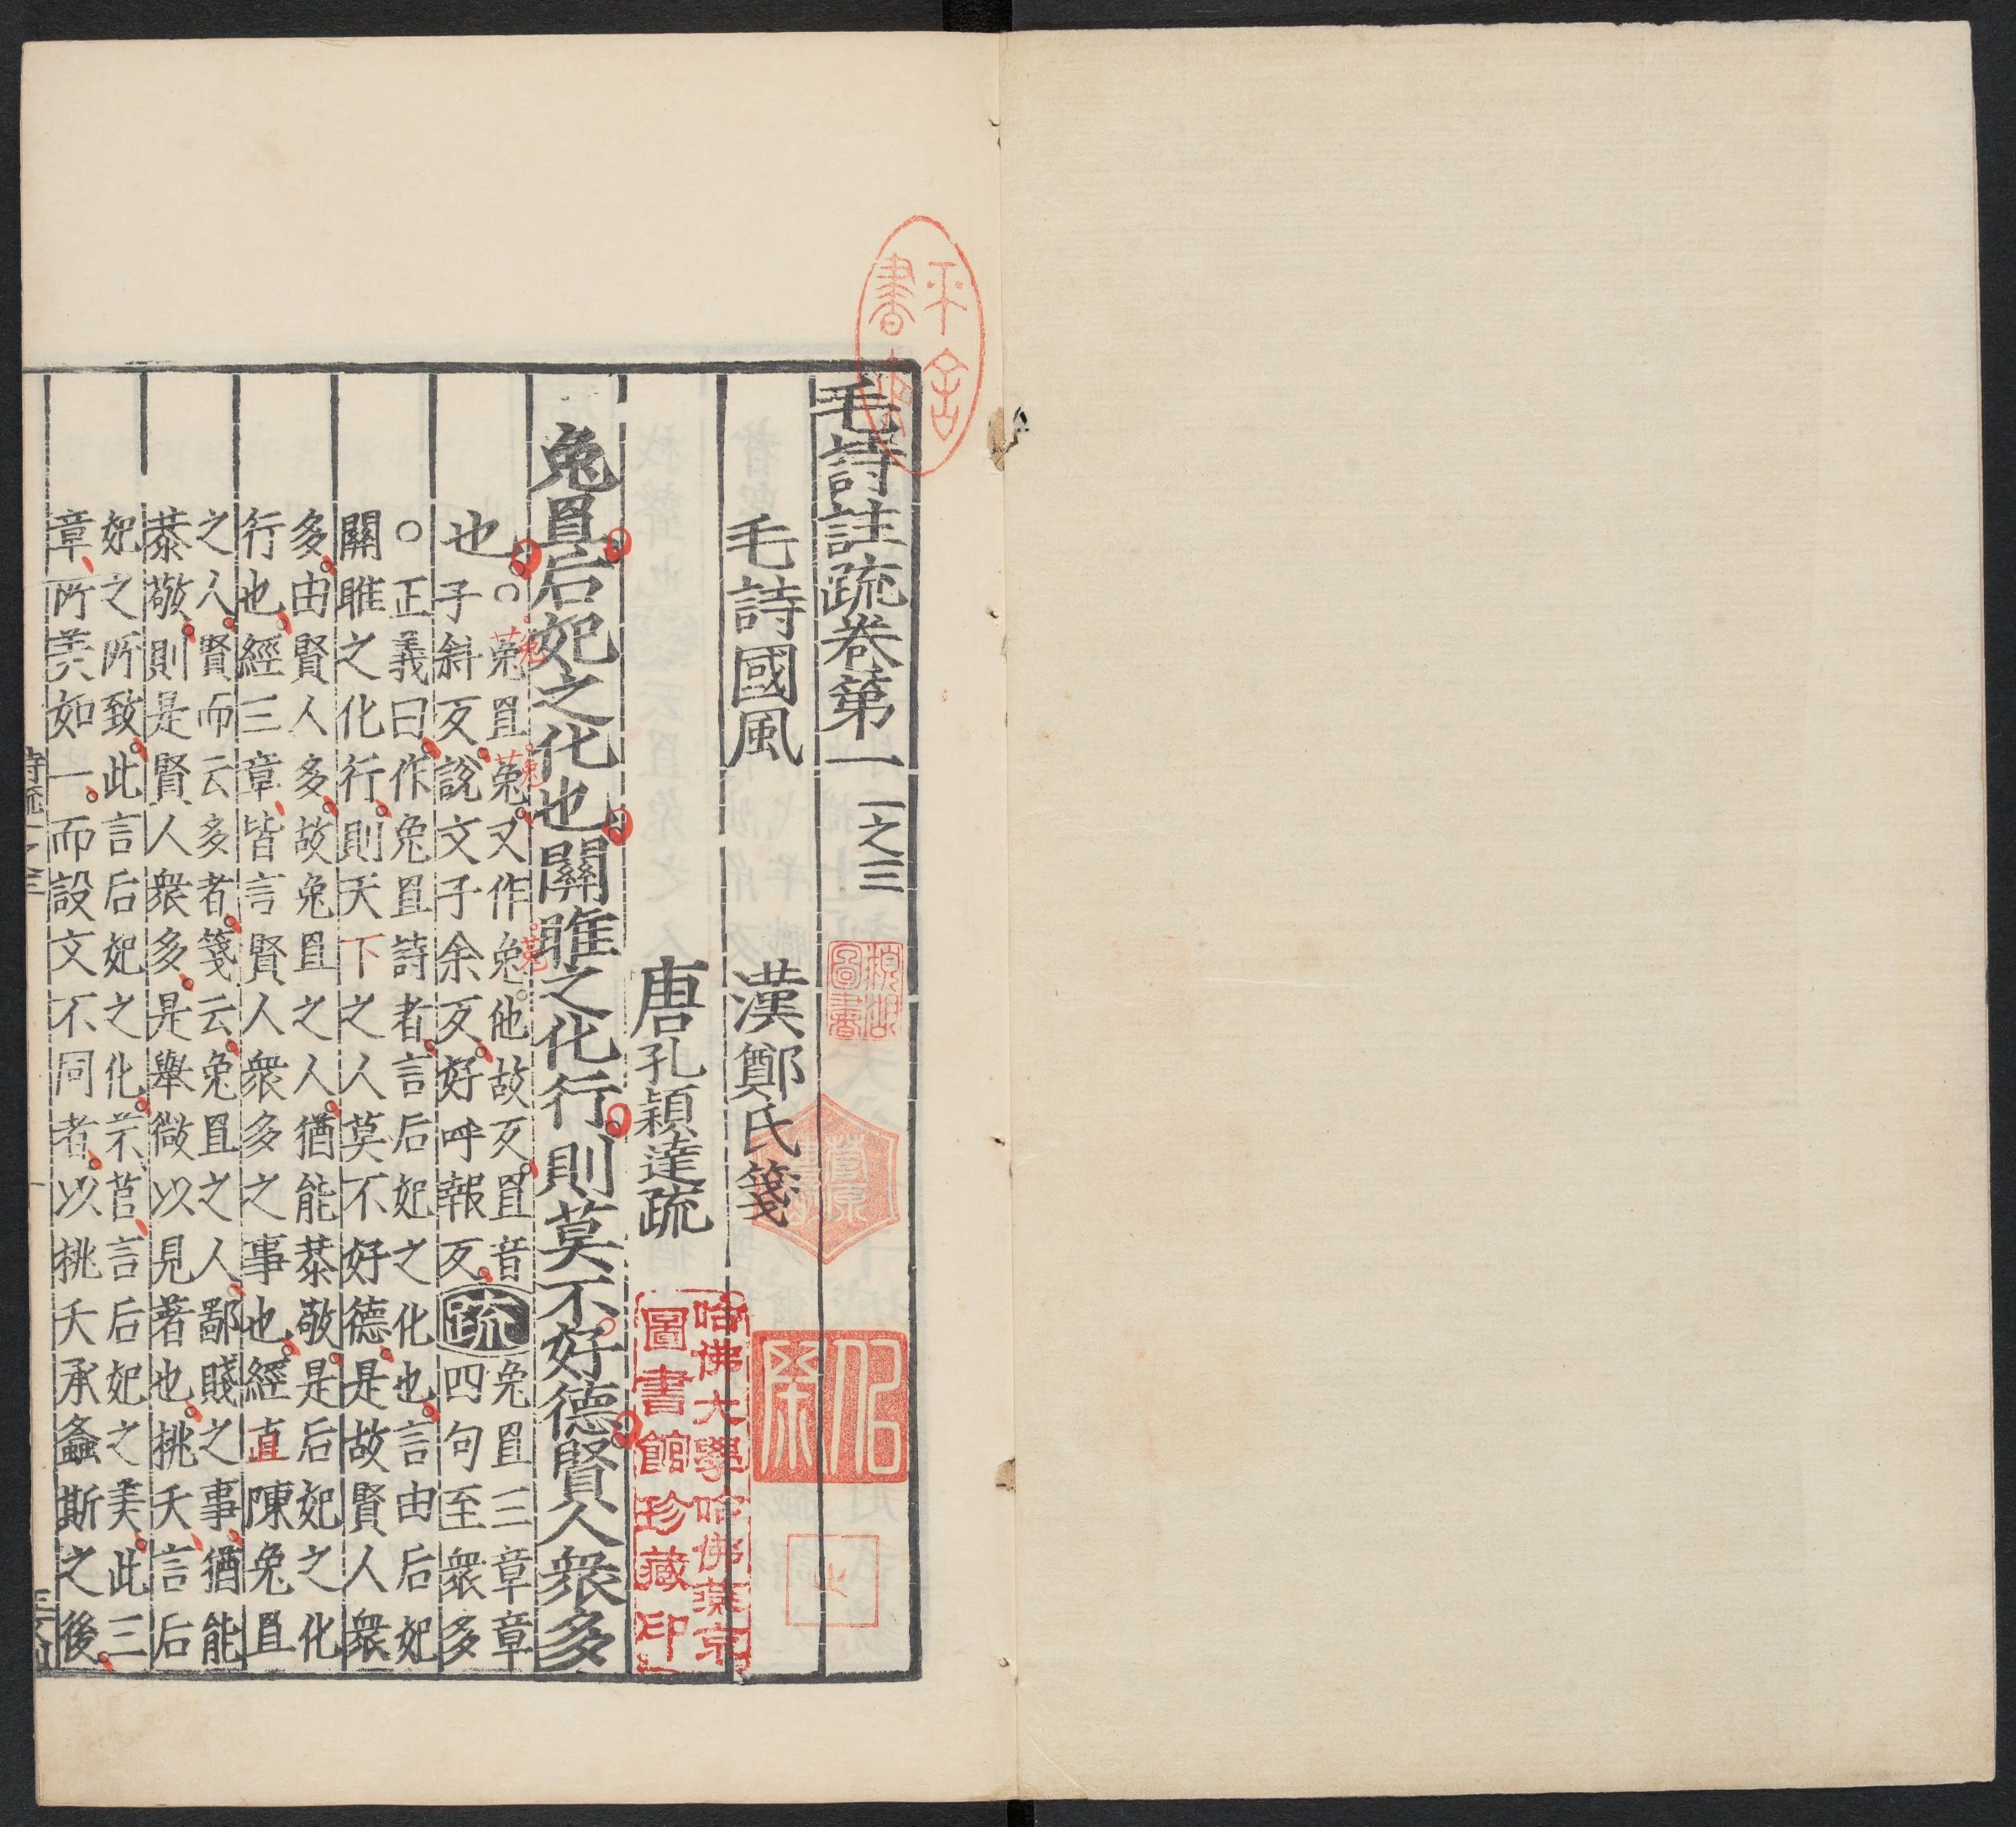 毛詩註疏卷第一 一之三
毛詩國風 漢鄭氏箋
唐孔穎達疏
兔罝后妃之化也關雎之化行則莫不好德賢人衆多
也
○菟罝菟又作兔他故反罝音
子斜反說文子余反好呼報反
疏
兔罝三章章
四句至衆多
○正義曰作兔罝詩者言后妃之化也言由后妃
關雎之化行則天下之人莫不好德是故賢人衆
多由賢人多故兔罝之人猶能恭敬是后妃之化
行也經三章皆言賢人衆多之事也經直陳兔罝
之人賢而云多者箋云兔罝之人鄙賤之事猶能
恭敬則是賢人衆多是舉微以見著也桃夭言后
妃之所致此言后妃之化芣苢言后妃之美此三
章所美如一而設文不同者以桃夭承螽斯之後
兔
兔
菟
哈佛大學哈佛燕京
圖書館珍藏印